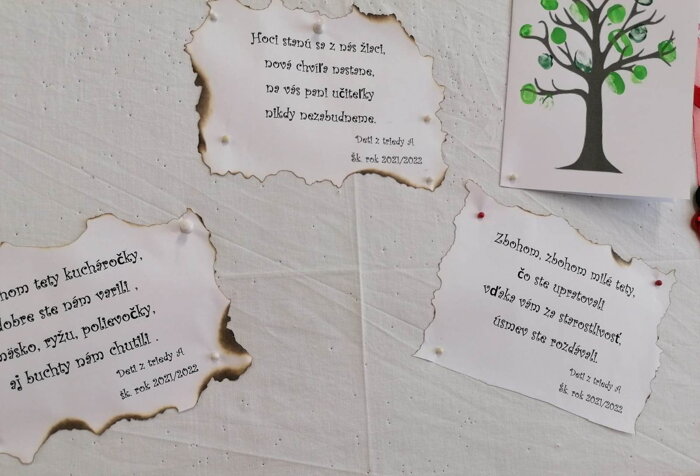 Hoci stanú sa z nás žiaci,
nová chvíľa nastane,
na vás pani učiteľky
nikdy nezabudneme.
Deti z triedy A
Šk. rok 2021/2022
hom tety kucháročky,
dobre ste nám varili ,
mäsko, ryžu, polievočky,
aj buchty nám chutili .
Deti z triedy A
šk. rok 2021/2022
Zbohom, zbohom milé tety,
čo ste upratovali
vďaka vám za starostlivosť,
úsmev ste rozdávali.
Deti z triedy A
Šk. rok 2021/2022